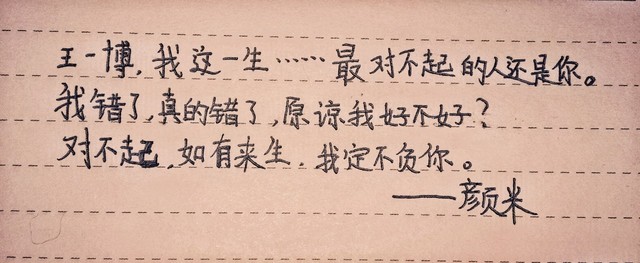 王一博,我这一生……最对不起的人还是你。
我错了,真的错了,原谅我好不好?
对不起,如有来生,我定不负你。
——颜米